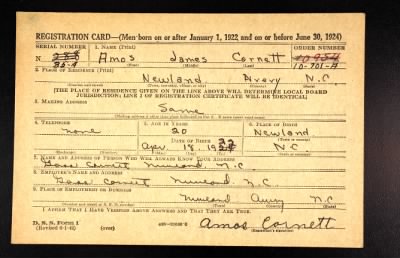 REGISTRATION CARD—(Men born on or after January 1, 1922 and on or before June 30, 1924)
SERIAL NUMBER 1. NAME (Print) ORDER NUMBER
N Amos James Cornett 10954
36-A (First) (Middle) (Last) 10-701-A
2. PLACE OF RESIDENCE (Print)
Newland Avery N.C
[THE PLACE OF RESIDENCE GIVEN ON THE LINE ABOVE WILL DETERMINE LOCAL BOARD
JURISDICTION; LINE 2 OF REGISTRATION CERTIFICATE WILL BE IDENTICAL]
3. MAILING ADDRESS
Same
[Mailing address if other than place indicated on line 2. If same insert word same]
4. TELEPHONE 5. AGE IN YEARS 6. PLACE OF BIRTH
none 20 Newland
DATE OF BIRTH
22
Apr. 18. 19 N C
(Exchange) (Number) (Mo.) (Day) (Yr.) (State or country)
7. NAME AND ADDRESS OF PERSON WHO WILL ALWAYS KNOW YOUR ADDRESS
Cornett Newland N.C.
8. EMPLOYER'S NAME AND ADDRESS
Cornett Newland N.C.
9. PLACE OF EMPLOYMENT OR BUSINESS
Newland Avery N.C
(Number and street or R. F. D. number) (Town) (County) (State)
I AFFIRM THAT I HAVE VERIFIED ABOVE ANSWERS AND THAT THEY ARE TRUE.
D. S. S. Form 1
(Revised 6-1-42) (over) Amos Cornett
(Registrant's signature)